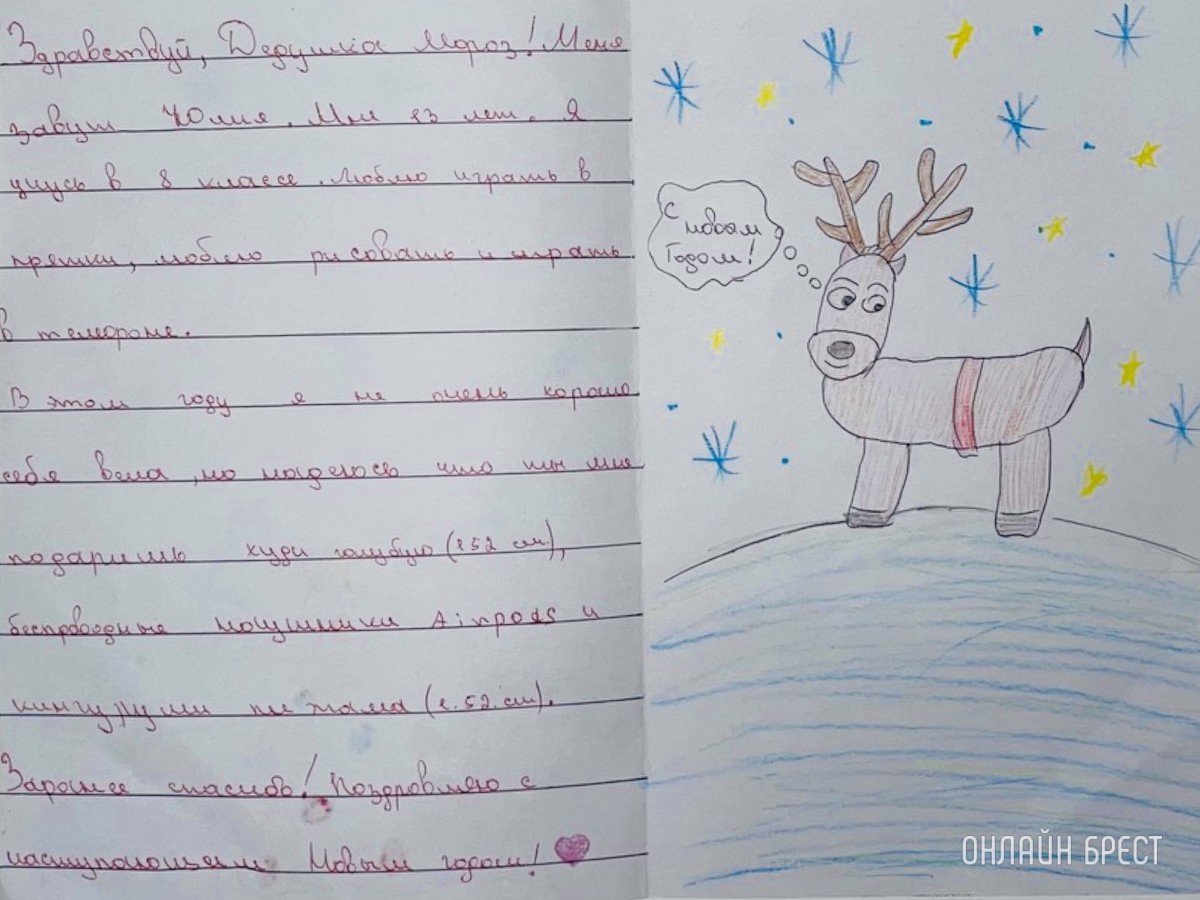 Здравствуй, Дедушка Мороз! Меня
завут Юлия. Мне 13 лет. Я
учусь в 8 классе. Люблю играть в
прятки, люблю рисовать и играть
в телефоне.
В этом году я не очень хорошо
себя вела, но надеюсь что ты мне
подаришь худи голубую (152 см),
беспроводные наушники Airpods и
кингуруми пижама (1.52.см).
Заранее спасибо! Поздровляю с
наступающим Новым годом!
С новым
Годом!
ОНЛАЙН БРЕСТ